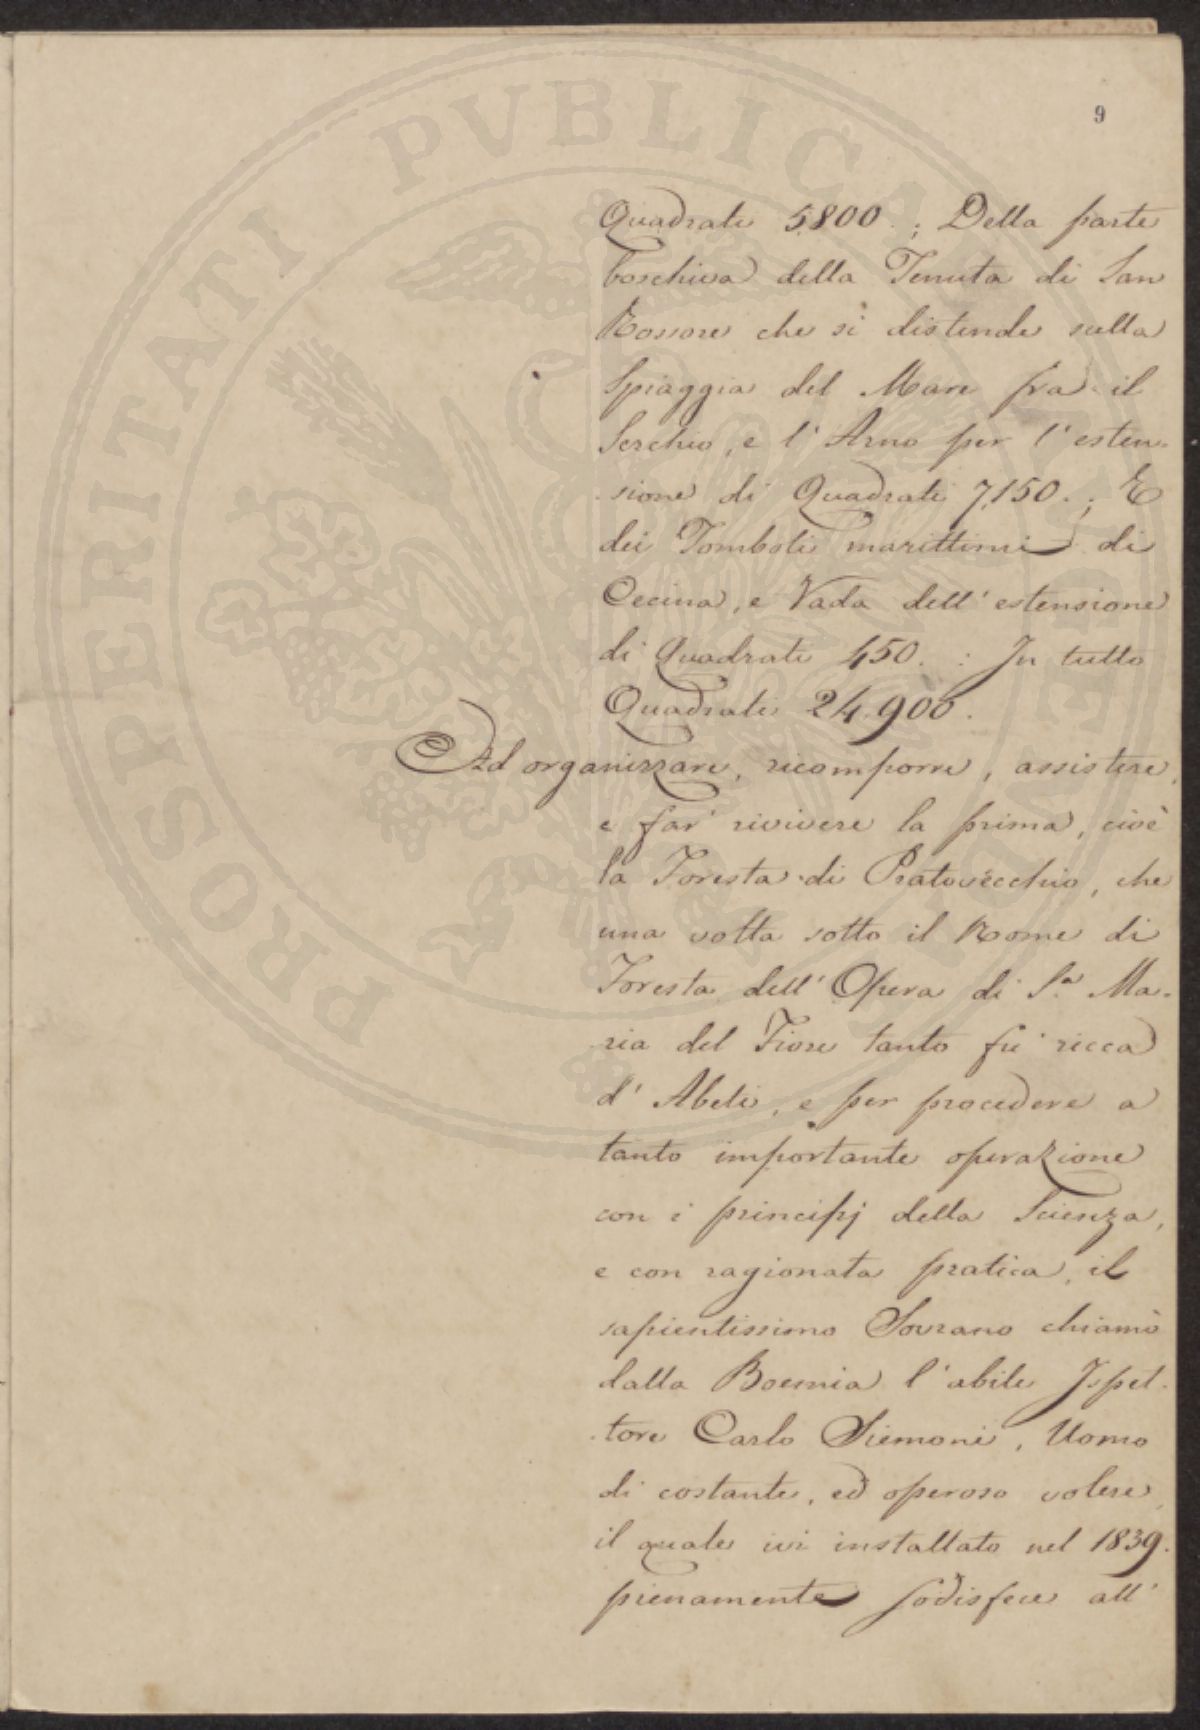 PROSPERITATI PVBLICAE
9
Quadrati 5800.; Della parte
boschiva della Tenuta di San
Rossore che si distende sulla
Spiaggia del Mare fra il
Serchio, e l' Arno per l' esten-
sione di Quadrati 7,150.; E
dei Tomboli marittimi di
Cecina, e Vada dell' estensione
di Quadrati 450. : In tutto
Quadrati 24,900.
Ad organizzare, ricomporre, assistere,
e far' rivivere la prima, cioè
la Foresta di Pratovecchio, che
una volta sotto il Nome di
Foresta dell' Opera di S.a Ma-
ria del Fiore tanto fu' ricca
d' Abeti, e per procedere a
tanto importante operazione
con i principj della Scienza,
e con ragionata pratica, il
sapientissimo Sovrano chiamò
dalla Boemia l' abile Ispet-
tore Carlo Siemoni, Uomo
di costante, ed operoso volere,
il quale ivi installato nel 1839.
pienamente sodisfece all'